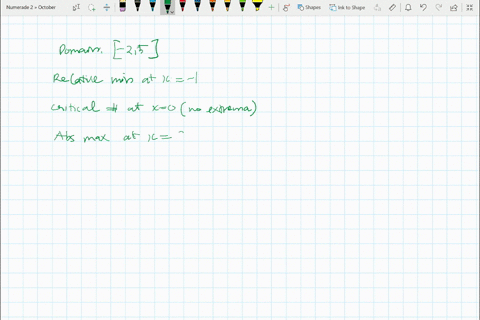 Numerade 2 > October
Shapes
Ink to Shape
Domain, [-2,5]
Relative min at x = -1
critical # at x=0 (no extrema)
Abs max at x =